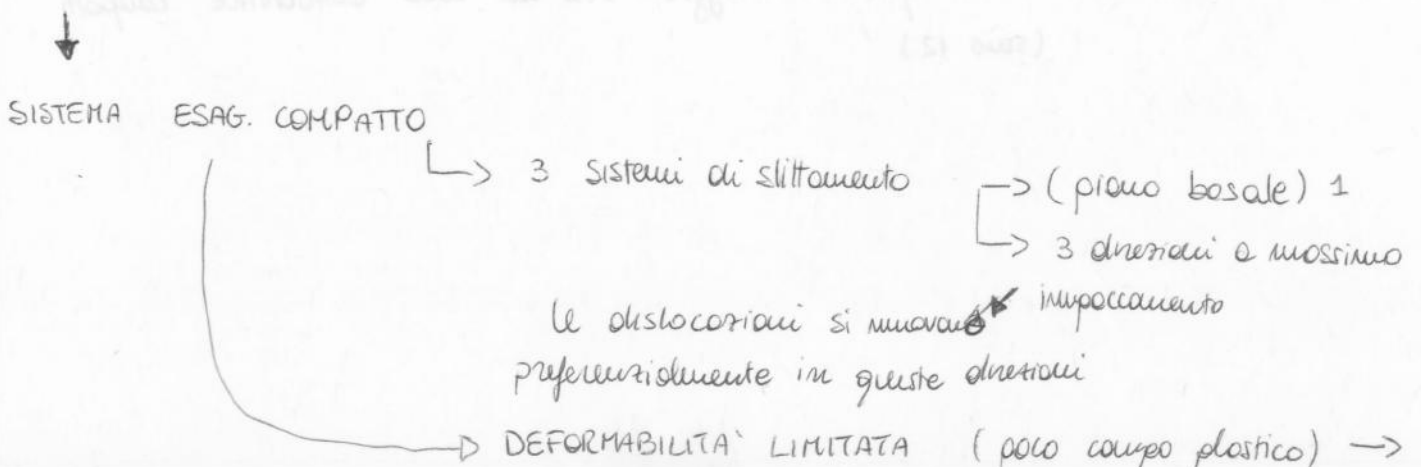 SISTEMA ESAG. COMPATTO
3 sistemi di slittamento
(piano basale) 1
3 direzioni a massimo
impaccamento
le dislocazioni si muovano
preferenzialmente in queste direzioni
DEFORMABILITA' LIMITATA (poco campo plastico)